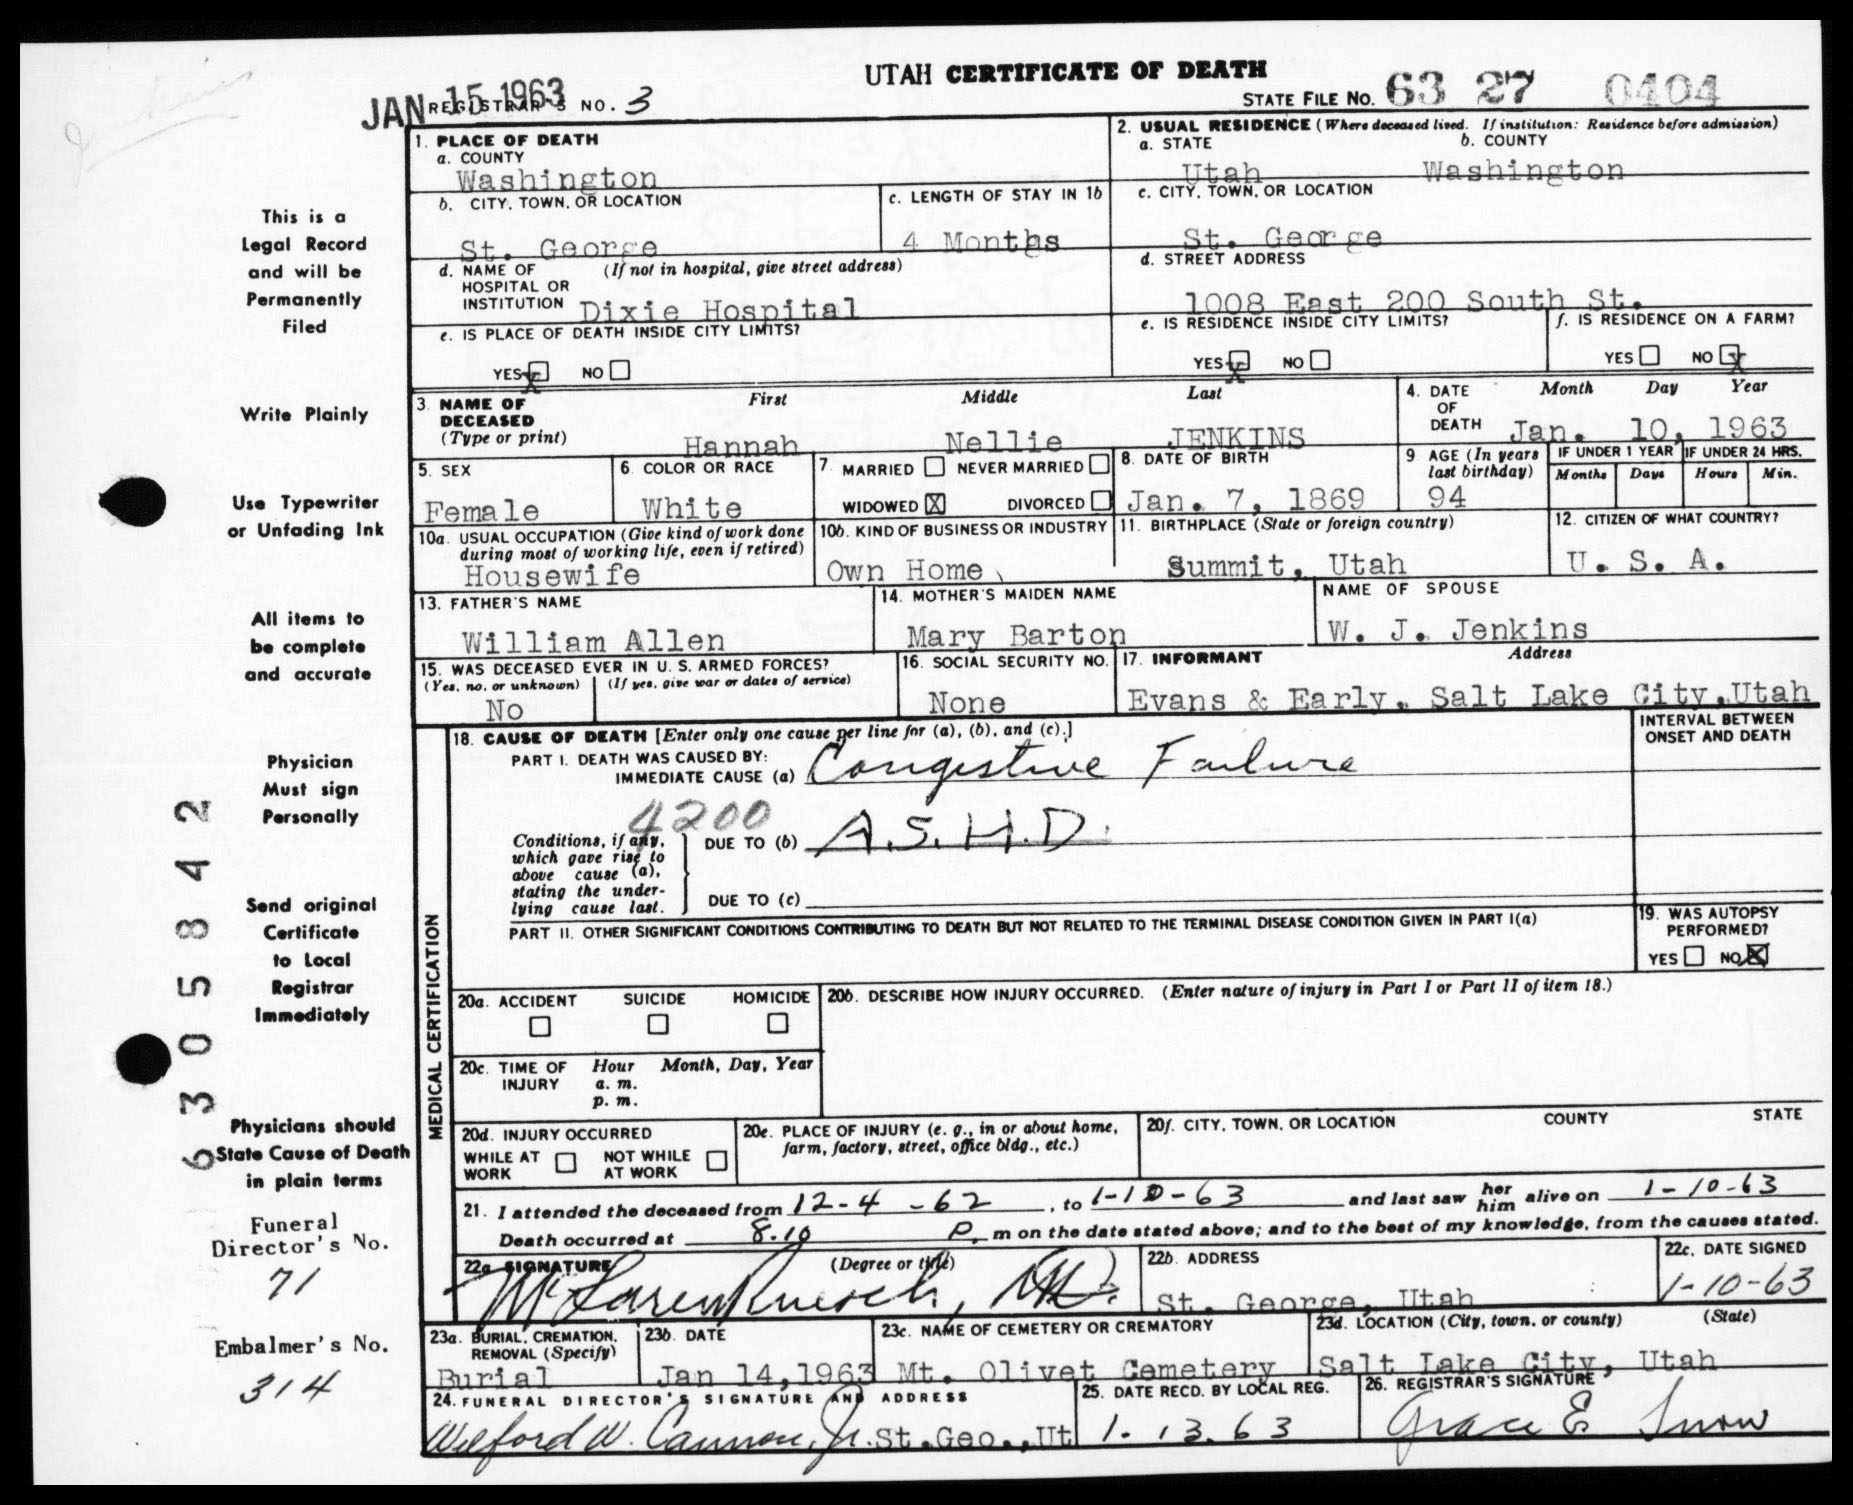 UTAH CERTIFICATE OF DEATH
JAN 15 1963
REGISTRAR'S NO. 3
STATE FILE NO. 63 27 0404
1. PLACE OF DEATH
a. COUNTY
Washington
2. USUAL RESIDENCE (Where deceased lived. If institution: Residence before admission)
a. STATE b. COUNTY
Utah Washington
b. CITY, TOWN, OR LOCATION
St. George
c. LENGTH OF STAY IN 1b
4 Months
c. CITY, TOWN, OR LOCATION
St. George
d. NAME OF (If not in hospital, give street address)
HOSPITAL OR
INSTITUTION Dixie Hospital
d. STREET ADDRESS
1008 East 200 South St.
e. IS PLACE OF DEATH INSIDE CITY LIMITS?
YES X NO
e. IS RESIDENCE INSIDE CITY LIMITS?
YES X NO
f. IS RESIDENCE ON A FARM?
YES NO X
3. NAME OF DECEASED (Type or print)
First Middle Last
Hannah Nellie JENKINS
4. DATE OF DEATH
Month Day Year
Jan. 10, 1963
5. SEX
Female
6. COLOR OR RACE
White
7. MARRIED NEVER MARRIED
WIDOWED X DIVORCED
8. DATE OF BIRTH
Jan. 7, 1869
9 AGE (In years last birthday)
94
IF UNDER 1 YEAR
Months Days
IF UNDER 24 HRS.
Hours Min.
10a. USUAL OCCUPATION (Give kind of work done during most of working life, even if retired)
Housewife
10b. KIND OF BUSINESS OR INDUSTRY
Own Home
11. BIRTHPLACE (State or foreign country)
Summit, Utah
12. CITIZEN OF WHAT COUNTRY?
U. S. A.
13. FATHER'S NAME
William Allen
14. MOTHER'S MAIDEN NAME
Mary Barton
NAME OF SPOUSE
W. J. Jenkins
15. WAS DECEASED EVER IN U. S. ARMED FORCES?
(Yes, no, or unknown) (If yes, give war or dates of service)
No
16. SOCIAL SECURITY NO.
None
17. INFORMANT Address
Evans & Early, Salt Lake City, Utah
MEDICAL CERTIFICATION
18. CAUSE OF DEATH [Enter only one cause per line for (a), (b), and (c).]
INTERVAL BETWEEN ONSET AND DEATH
PART I. DEATH WAS CAUSED BY:
IMMEDIATE CAUSE (a) Congestive Failure
4200
Conditions, if any, which gave rise to above cause (a), stating the underlying cause last.
DUE TO (b) A.S.H.D.
DUE TO (c)
PART II. OTHER SIGNIFICANT CONDITIONS CONTRIBUTING TO DEATH BUT NOT RELATED TO THE TERMINAL DISEASE CONDITION GIVEN IN PART I(a)
19. WAS AUTOPSY PERFORMED?
YES NO X
20a. ACCIDENT SUICIDE HOMICIDE
20b. DESCRIBE HOW INJURY OCCURRED. (Enter nature of injury in Part I or Part II of item 18.)
20c. TIME OF INJURY
Hour Month, Day, Year
a. m.
p. m.
20d. INJURY OCCURRED
WHILE AT WORK NOT WHILE AT WORK
20e. PLACE OF INJURY (e. g., in or about home, farm, factory, street, office bldg., etc.)
20f. CITY, TOWN, OR LOCATION COUNTY STATE
21. I attended the deceased from 12-4-62, to 1-10-63 and last saw her him alive on 1-10-63
Death occurred at 8.10 P. m on the date stated above; and to the best of my knowledge, from the causes stated.
22a SIGNATURE (Degree or title)
McLaren Ruesch, M.D.
22b. ADDRESS
St. George, Utah
22c. DATE SIGNED
1-10-63
23a. BURIAL, CREMATION, REMOVAL (Specify)
Burial
23b. DATE
Jan 14, 1963
23c. NAME OF CEMETERY OR CREMATORY
Mt. Olivet Cemetery
23d. LOCATION (City, town, or county) (State)
Salt Lake City, Utah
24. FUNERAL DIRECTOR'S SIGNATURE AND ADDRESS
Wilford W. Cannon, Jr. St.Geo., Ut
25. DATE RECD. BY LOCAL REG.
1. 13. 63
26. REGISTRAR'S SIGNATURE
Grace E Snow
This is a
Legal Record
and will be
Permanently
Filed
Write Plainly
Use Typewriter
or Unfading Ink
All items to
be complete
and accurate
Physician
Must sign
Personally
Send original
Certificate
to Local
Registrar
Immediately
Physicians should
State Cause of Death
in plain terms
Funeral
Director's No.
71
Embalmer's No.
314
6305842